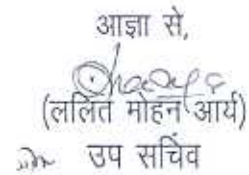 आज्ञा से,
(ललित मोहन आर्य)
उप सचिव